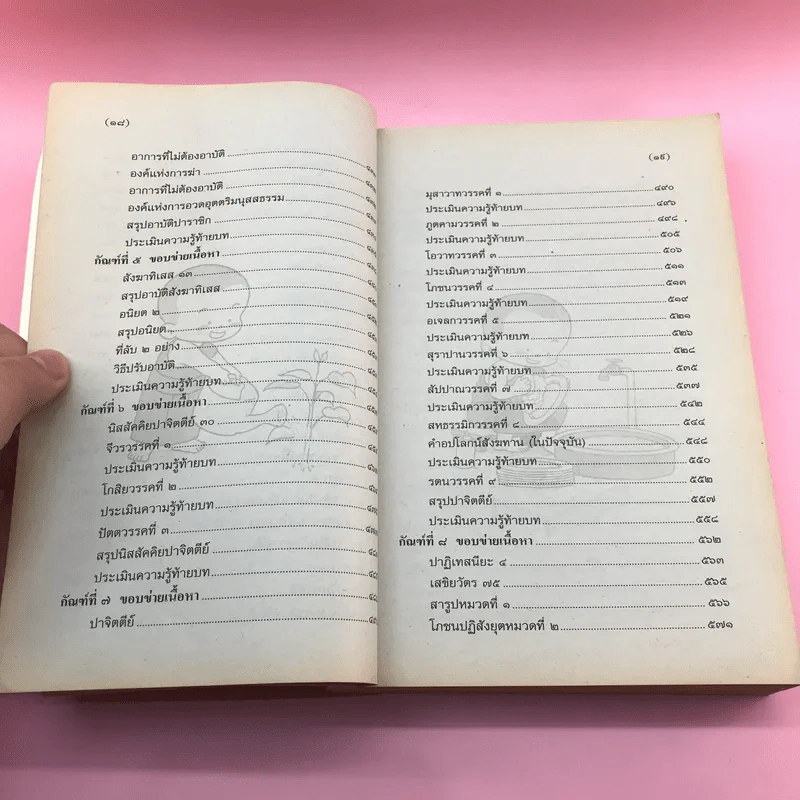 (๑๘)
อาการที่ไม่ต้องอาบัติ
องค์แห่งการฆ่า
อาการที่ไม่ต้องอาบัติ
องค์แห่งการอวดอุตตริมนุสสธรรม
สรุปอาบัติปาราชิก
ประเมินความรู้ท้ายบท
กัณฑ์ที่ ๕ ขอบข่ายเนื้อหา
สังฆาทิเสส ๑๓
สรุปอาบัติสังฆาทิเสส
อนิยต ๒
สรุปอนิยต
ที่ลับ ๒ อย่าง
วิธีปรับอาบัติ
ประเมินความรู้ท้ายบท
กัณฑ์ที่ ๖ ขอบข่ายเนื้อหา
นิสสัคคิยปาจิตตีย์ ๓๐
จีวรวรรคที่ ๑
ประเมินความรู้ท้ายบท
โกสิยวรรคที่ ๒
ประเมินความรู้ท้ายบท
ปัตตวรรคที่ ๓
สรุปนิสสัคคิยปาจิตตีย์
ประเมินความรู้ท้ายบท
กัณฑ์ที่ ๗ ขอบข่ายเนื้อหา
ปาจิตตีย์
(๑๙)
มุสาวาทวรรคที่ ๑ ๔๙๐
ประเมินความรู้ท้ายบท ๔๙๖
ภูตคามวรรคที่ ๒ ๔๙๘
ประเมินความรู้ท้ายบท ๕๐๕
โอวาทวรรคที่ ๓ ๕๐๖
ประเมินความรู้ท้ายบท ๕๑๑
โภชนวรรคที่ ๔ ๕๑๓
ประเมินความรู้ท้ายบท ๕๑๙
อเจลกวรรคที่ ๕ ๕๒๑
ประเมินความรู้ท้ายบท ๕๒๖
สุราปานวรรคที่ ๖ ๕๒๘
ประเมินความรู้ท้ายบท ๕๓๕
สัปปาณวรรคที่ ๗ ๕๓๗
ประเมินความรู้ท้ายบท ๕๔๒
สหธรรมิกวรรคที่ ๘ ๕๔๔
คำอปโลกน์สังฆทาน (ในปัจจุบัน) ๕๔๘
ประเมินความรู้ท้ายบท ๕๕๐
รตนวรรคที่ ๙ ๕๕๒
สรุปปาจิตตีย์ ๕๕๗
ประเมินความรู้ท้ายบท ๕๕๘
กัณฑ์ที่ ๘ ขอบข่ายเนื้อหา ๕๖๒
ปาฏิเทสนียะ ๔ ๕๖๓
เสขิยวัตร ๗๕ ๕๖๕
สารูปหมวดที่ ๑ ๕๖๖
โภชนปฏิสังยุตหมวดที่ ๒ ๕๗๑